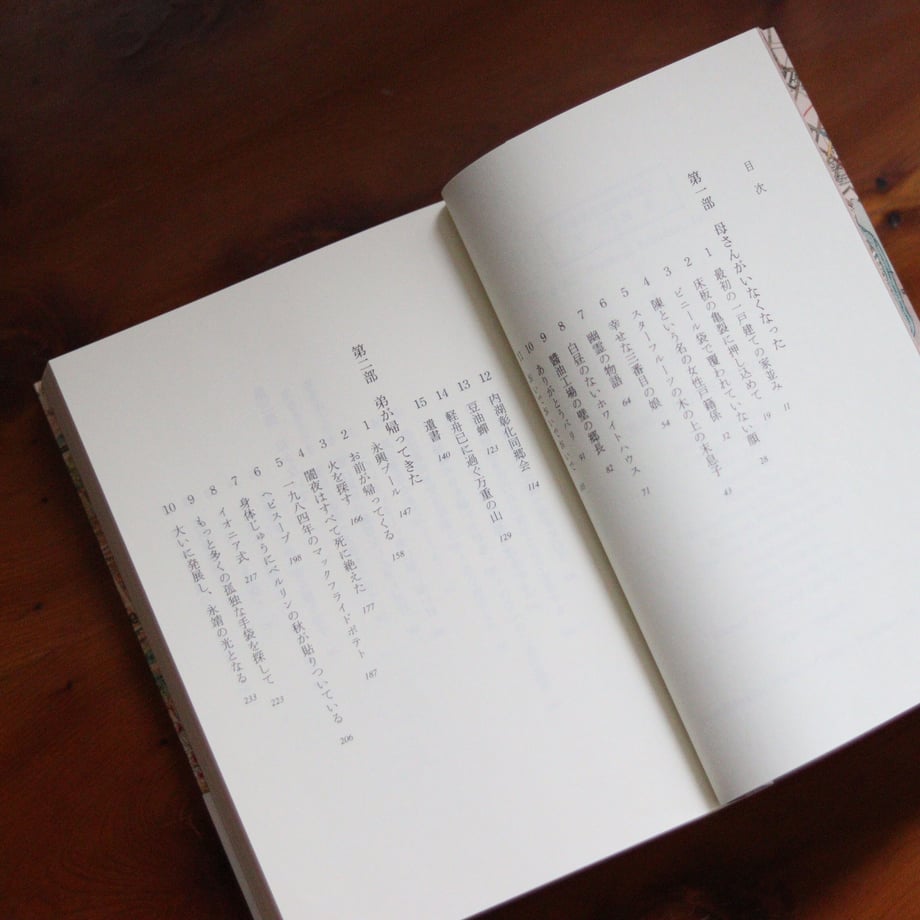 目次
第一部 母さんがいなくなった
1 最初の一戸建ての家並み 11
2 床板の亀裂に押し込めて 19
3 ビニール袋で覆われていない顔 28
4 陳という名の女性戸籍係 32
5 スターフルーツの木の上の末息子 43
6 幸せな三番目の娘 54
7 幽霊の物語 64
8 白昼のないホワイトハウス 71
9 醬油工場の壁の郷長 82
10 ありがとうパリ 91
11
12 内湖彰化同郷会 114
13 豆油蟬 123
14 軽舟已に過ぐ万重の山 129
15 遺書 140
第二部 弟が帰ってきた
1 永興プール 147
2 お前が帰ってくる 158
3 火を探す 166
4 闇夜はすべて死に絶えた 177
5 一九八四年のマックフライドポテト 187
6 ヘビスープ 198
7 身体じゅうにベルリンの秋が貼りついている 206
8 イオニア式 217
9 もっと多くの孤独な手袋を探して 223
10 大いに発展し、永靖の光となる 233